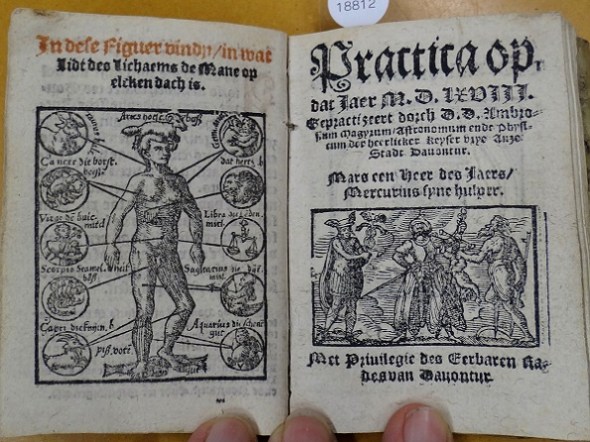 In dese Figuer vindy/in wat
Lidt des Lichaems de Mane op
elcken dach is.
Aries hooft
Cancer die borst.
Libra die
Scorpio
Sagitarius die
Capri die knyen.
Aquarius die schen
piss. voete
18812
Practica op,
dat Jaer M. D. LXVIII.
Gepractizeert dorch D. D. Ambro-
sium Magyrum/Astronomum ende Physi-
cum der heerlicker Keyser vrye Anze
Stadt Dauontur.
Mars een Heer des Jaers/
Mercurius syne hulper.
Met Priuilegie des Eerbaren Ra-
des van Dauontur.